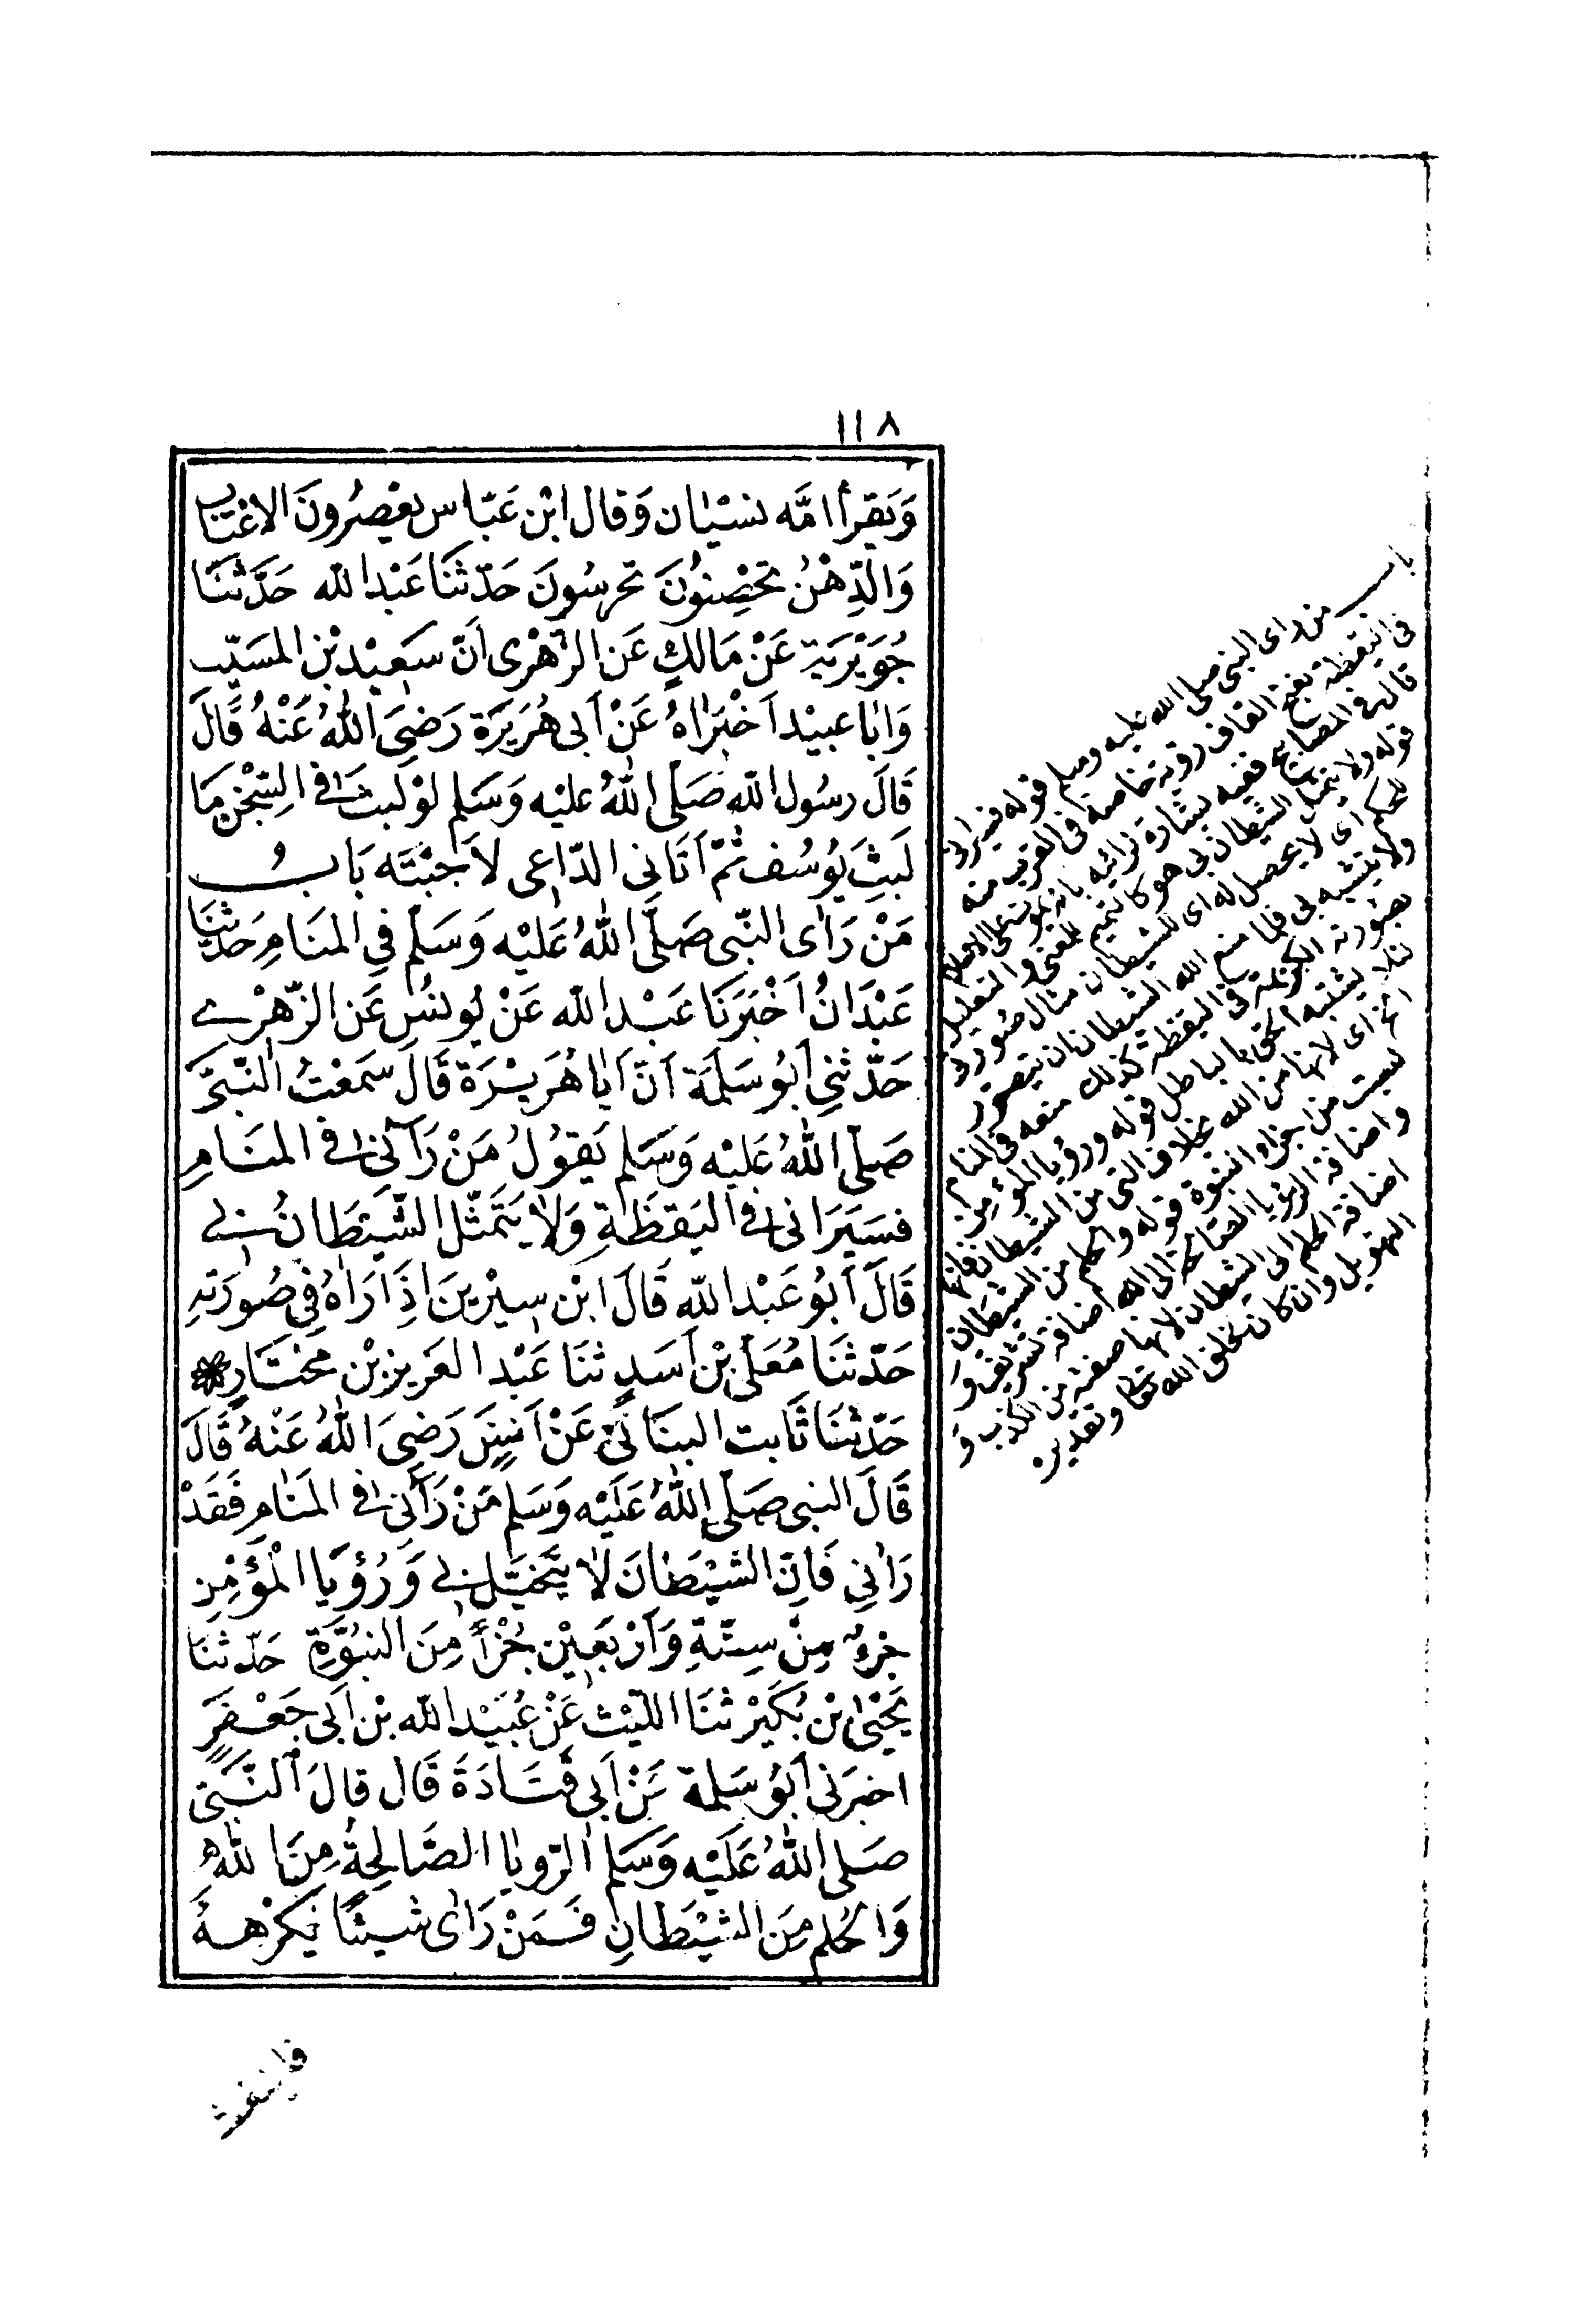 ١١٨
وَيَقرأ امَّه نسْيَان وَقال ابْن عَبّاس يعْصِرُونَ الاعْناب
وَالدِّهْنُ تحْصِنُونَ تحرسُونَ حَدّثنَا عَبْد الله حَدَّثَنَا
جُوَيْريَة عَنْ مَالكٍ عَن الزّهْرى أنّ سَعِيْد بْن المسَيّب
وَابا عبيْد اَخْبَرَاهُ عَنْ أبى هُرَيرَة رَضىَ اللهُ عَنْهُ قَالَ
قَالَ رسُول الله صَلّى اللهُ عليْه وَسَلم لوْ لبث فى السِّجْن مَا
لَبثَ يُوسُف ثُمّ اَتَانى الدّاعى لاَجَبْتَه بَابُ
مَنْ رَاى النّبى صَلّى اللهُ عَليْه وَسَلّم فِي المنَامِ حَدثنَا
عَبْدَانُ اَخْبَرَنَا عَبْد الله عَنْ يُونسُ عَن الزّهْرِے
حَدّثنِى اَبُو سَلمَة اَنّ اَبَا هُرَيْرَة قَالَ سَمعْتُ النّبىَّ
صَلّى اللهُ عَليْه وَسَلم يَقوُلُ مَنْ رَآنى فى المنَامِ
فسَيَرَانى فى اليَقظَةِ وَلاَ يَتَمثّل الشّيْطَانُ بى
قَالَ أَبُو عَبْد الله قَالَ ابْن سِيْرينَ اذَا رَاهُ فِي صُورَتهِ
حَدّثنَا مُعَلّى بْن اَسَدٍ ثنَا عَبْد العَزيز بْن مخْتَارٍ
حَدّثنَا ثَابت البنَانىّ عَنْ اَنسٍ رَضىَ اللهُ عَنْهُ قَالَ
قَالَ النبى صَلّى اللهُ عَليْه وَسَلم مَنْ رَآنى فى المنَامِ فَقَدْ
رَاٰنِي فَانّ الشيْطَانَ لاَ يتَخيّل بى وَرُؤيَا الْمؤْمِن
جزءٌ مِنْ سِتّةٍ وَاَرْبَعيْن جُزْأً مِنَ النبُوَّةِ حَدّثنَا
يَحْيىٰ بْن بُكَيْر ثنَا الليْث عَنْ عُبَيْد الله بْن اَبى جَعْفَرٍ
اخبَرَنى اَبُو سَلمة عَنْ اَبى قتَادَةَ قَال قالَ النّبىّ
صَلى اللهُ عَلَيْه وَسَلم الرّويَا الصَّالحِةُ مِنَ اللهِ
وَالحُلم مِنَ الشيْطَانِ فَمَنْ رَاى شيئًا يَكرْهـهُ
فلينفث
باب من راى النبى صلى الله عليه وسلم قوله فسيرانى
فى اليقظة بفتح القاف رؤية خاصة فى القرب منه
قال فى المصابيح ففيه بشارة لرائيه بانه يموت على الاسلام
قوله ولا يتمثل الشيطان بى هو كالتتميم للمعنى والتعليل
للحكم اى لا يحصل له اى للشيطان مثال صورتى
ولا يتشبه بى فكما منع الله الشيطان ان يتصور
بصورته الكريمة فى اليقظة كذلك منعه فى المنام
لئلا يشتبه الحق بالباطل قوله ورؤيا المؤمن
الخ اى لانها من الله بخلاف التى من الشيطان فانها
ليست من اجزاء النبوة قوله والحلم من الشيطان
واضافة الرؤيا الصالحة الى الله اضافة تشريف و
اضافة الحلم الى الشيطان لانها صفته من الكذب و
التهويل وان كان بخلق الله تعالى وتقديره